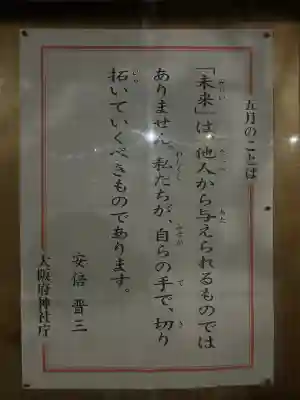 五月のことば
「未来」は他人から与えられるものでは
ありません。私たちが、自らの手で、切り
拓いていくべきものであります。
安倍晋三
大阪府神社庁